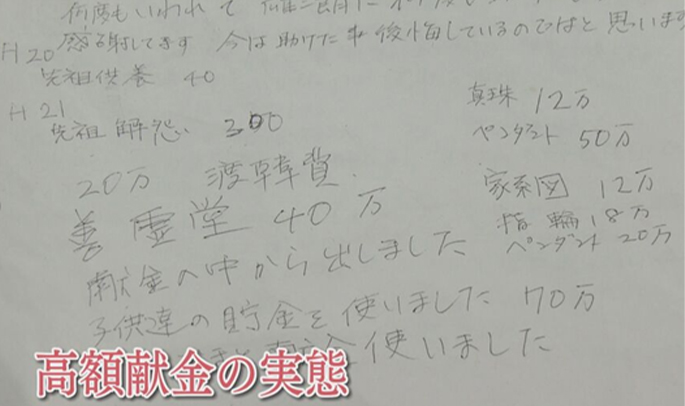 何度もいわれて
感謝してます 今は助けた事 後悔しているのではと思います
H20
先祖供養 40
H21
先祖解怨 300
20万 渡韓費
善霊堂 40万
献金の中から出しました
子供達の貯金を使いました 70万
使いました
真珠 12万
ペンダント 50万
家系図 12万
指輪 18万
ペンダント 20万
高額献金の実態